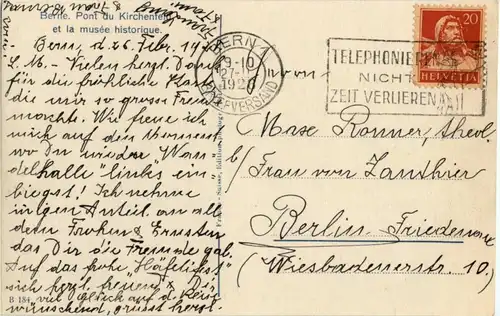 Berne. Pont du Kirchenfeld
et la musée historique.
Bern, d. 26. Febr. 192
L. M. - Vielen herzl. Dank
für die fröhliche Karte
die mir so grosse Freude
machte. Wie freue ich
mich auf den Moment
wo Du wieder "Wan
delhalle links ein-
biegst! Ich nehme
innigen Anteil an all
dem Frohen & Ernsten
das Dir die Fremde gab.
Auf das frohe "Häfelifest"
sich herzl. freuend & Dir
viel Glück auf d. Reise
wünschend, grüsst herzl.
B 184
BERN 1
9-10
27. II.
192
BRIEFVERSAND
TELEPHONIEREN
NICHT
ZEIT VERLIEREN
20
HELVETIA
Max Ronner, theol.
b/ Frau von Zanthier
Berlin-Friedenau
(Wiesbadenerstr. 10.)